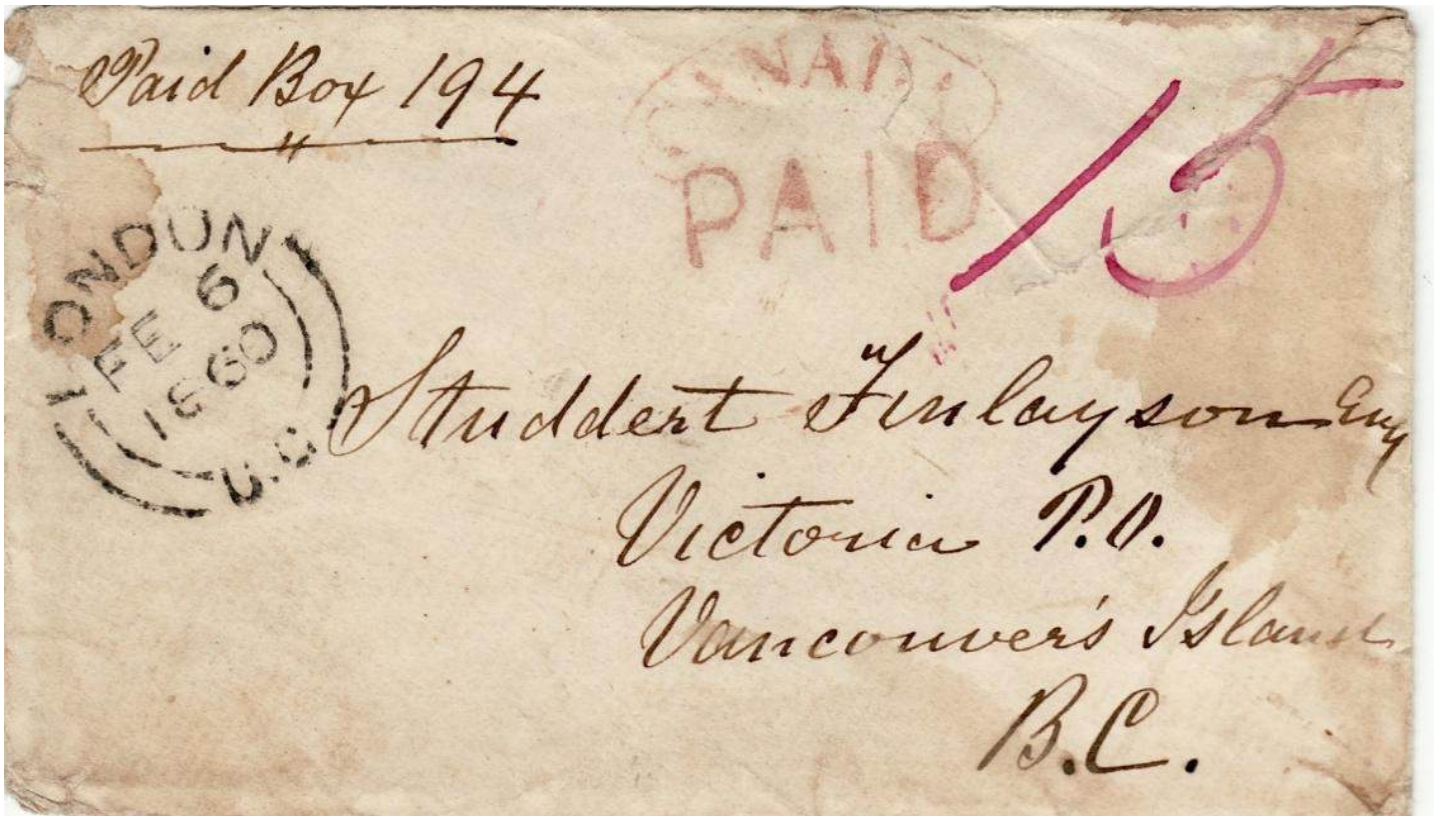 Paid Box 194
CANADA
PAID
15
LONDON
FE 6
1860
U.C
Studdert Finlayson Esq
Victoria P.O.
Vancouver's Island
B.C.